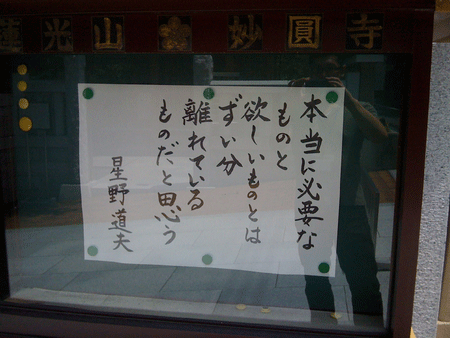 蓮光山 妙圓寺
本当に必要な
ものと
欲しいものとは
ずい分
離れている
ものだと思う
星野道夫